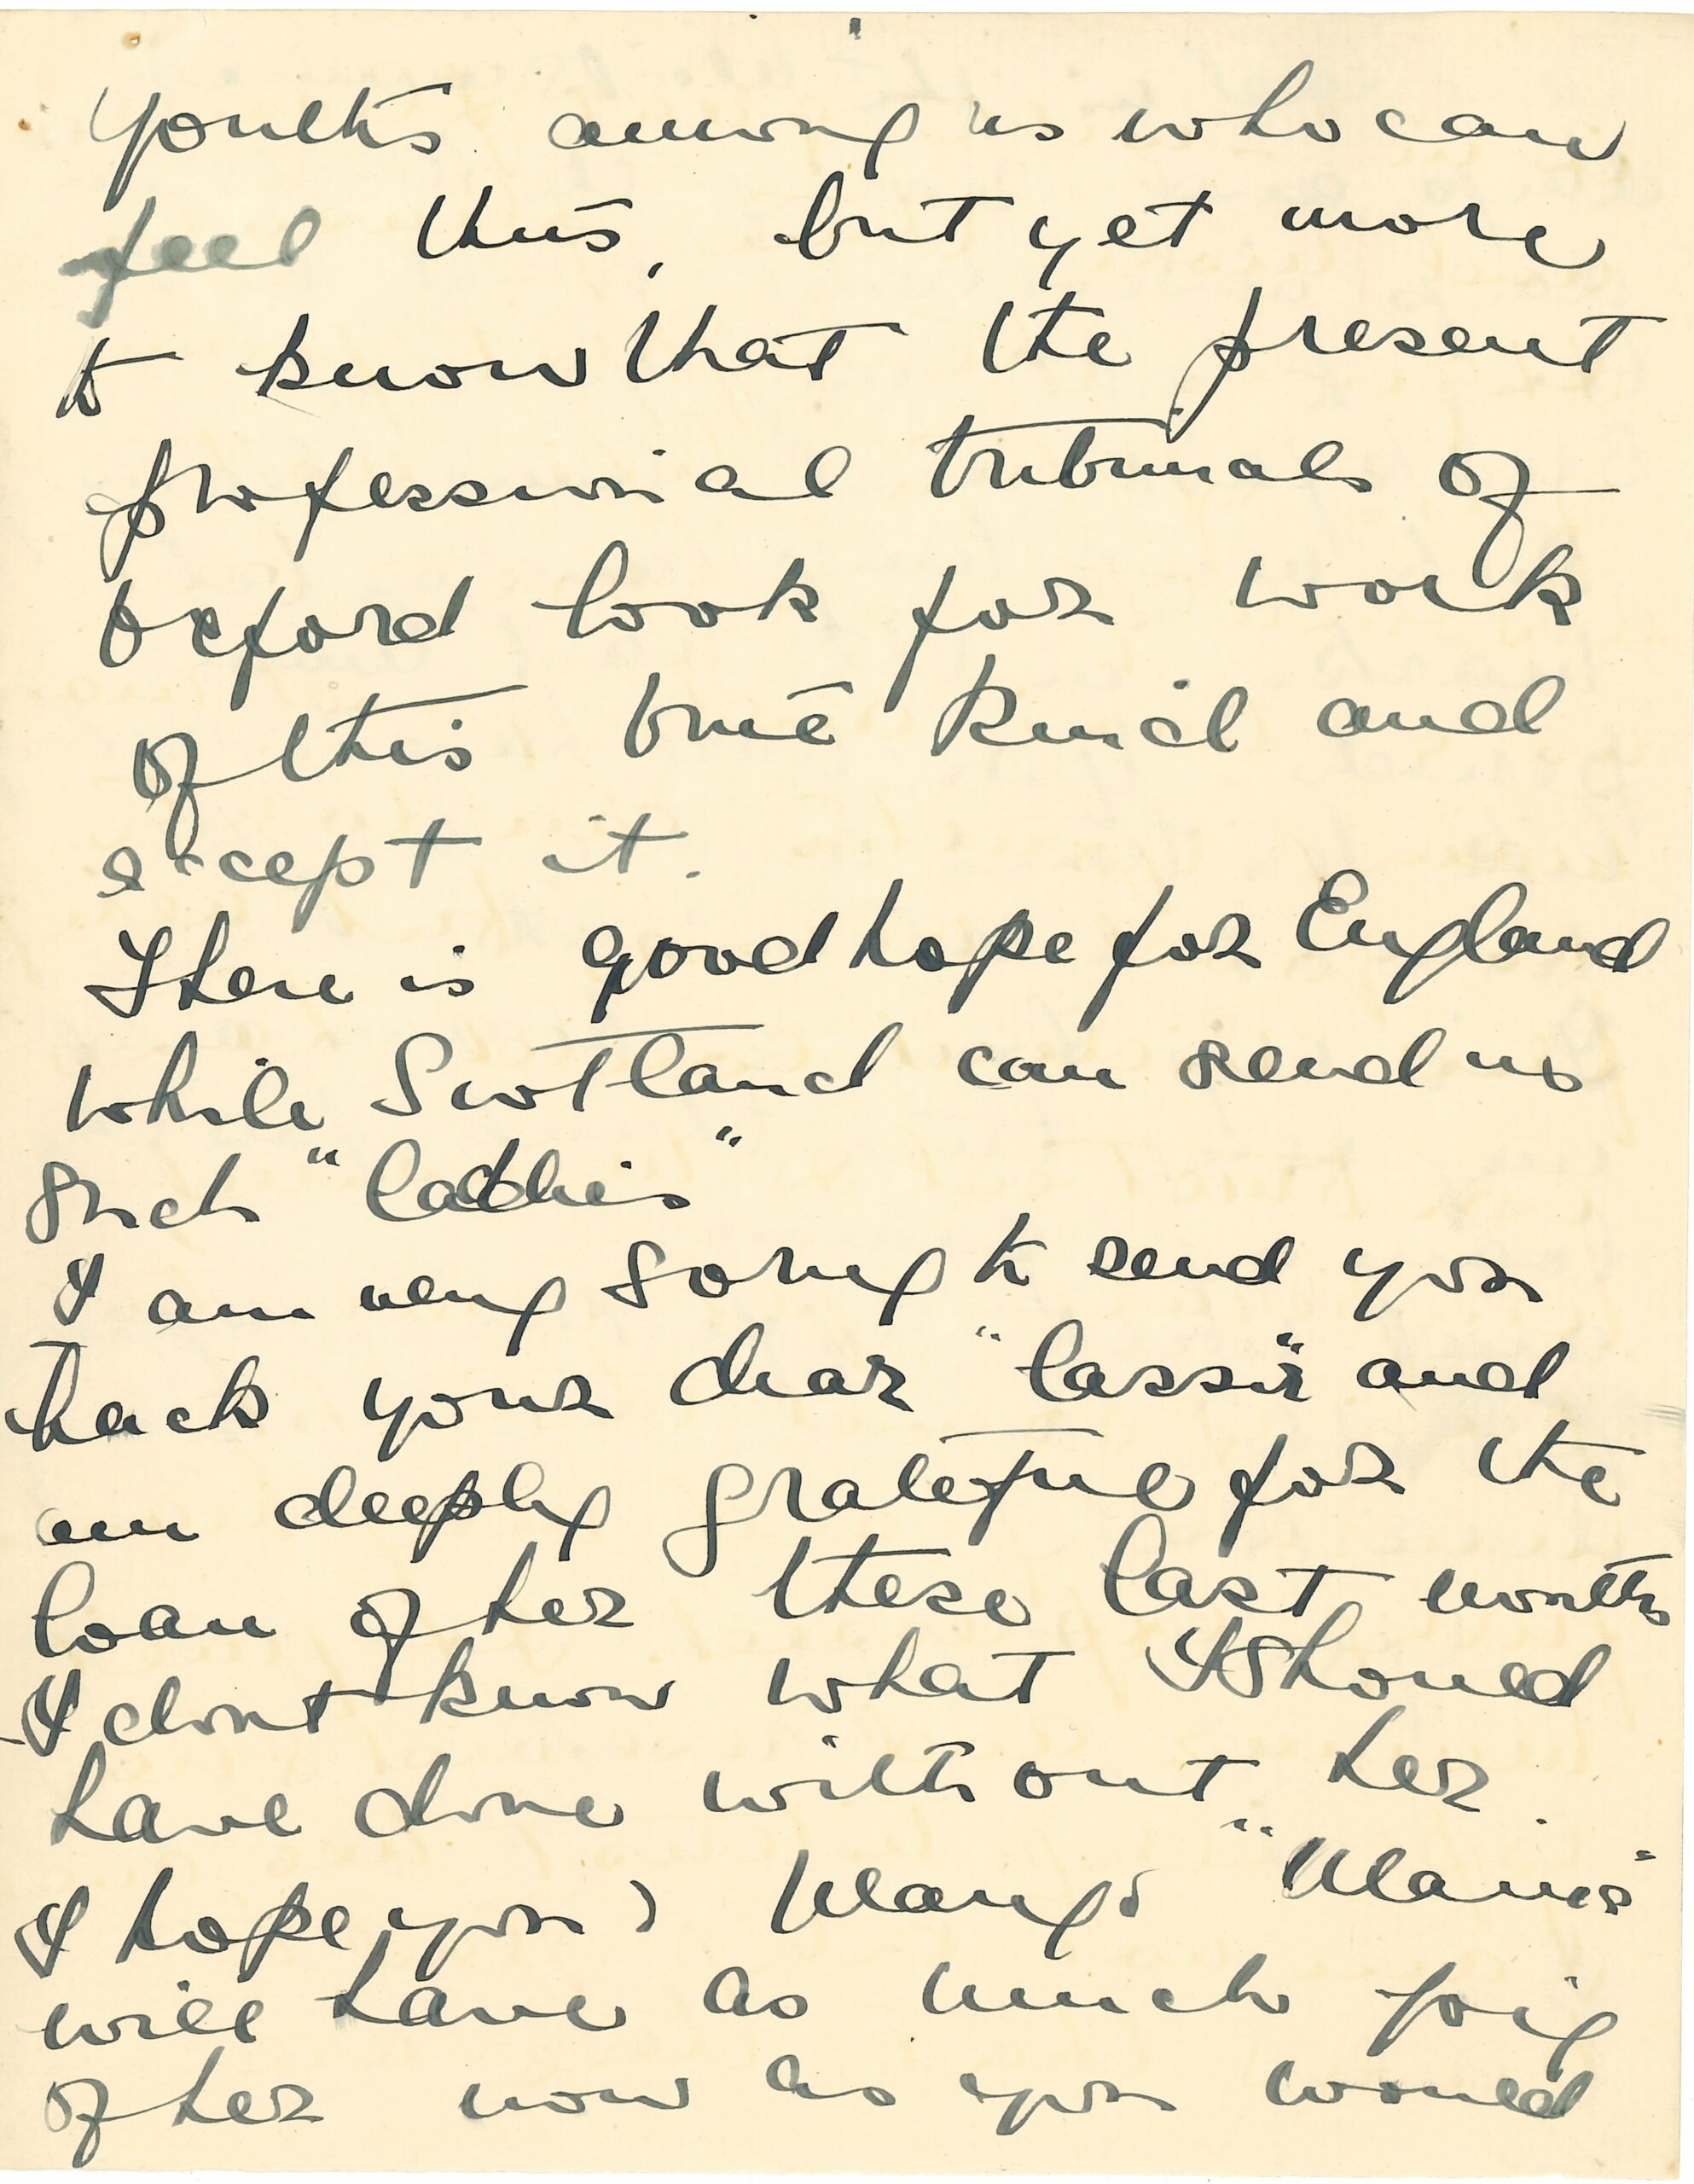 youths among us who can
feel this, but yet more
to know that the present
professional tribunals of
Oxford look for work
of this true kind and
except it.
There is good hope for England
while Scotland can send us
such "laddies"
I am very sorry to send you
back your dear "lassie" and
am deeply grateful for the
loan of her these last months
I dont know what I should
have done without her.
I hope you &
will have as much joy
of her now as you would